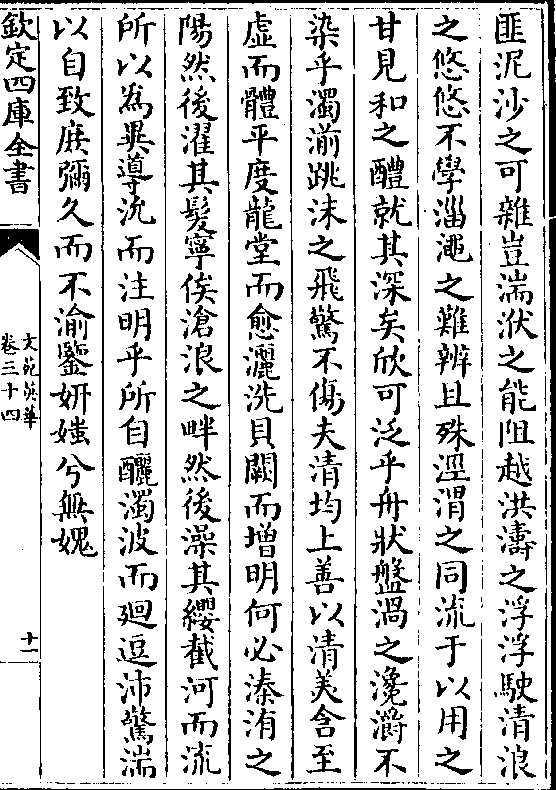 匪泥沙之可雜豈湍洑之能阻越洪濤之浮浮駛清浪
之悠悠不學淄澠之難辨且殊涇渭之同流于以用之
甘見和之醴就其深矣欣可泛乎舟狀盤渦之瀺灂不
染乎濁湔跳沫之飛驚不傷夫清均上善以清美含至
虛而體平度龍堂而愈灑洗貝闕而增明何必溱洧之
陽然後濯其髮寧俟滄浪之畔然後澡其纓截河而流
所以為異導沇而注明乎所自釃濁波而廻逗沛驚湍
以自致庶彌久而不渝鑒妍媸兮無媿
欽定四庫全書
文苑英華
卷三十四
十一